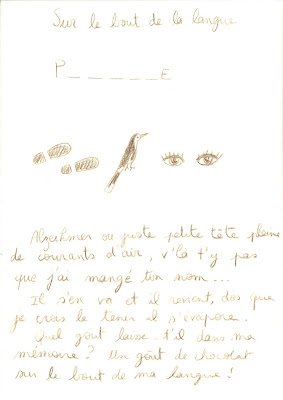 Sur le bout de la langue
P _ _ _ _ _ E
Alzehmer ou juste petite tête pleine
de courants d'air, v'là t'y pas
que j'ai mangé ton nom...
Il s'en va et il revient, dès que
je crois le tenir il s'évapore.
Quel goût laisse t'il dans ma
mémoire? Un goût de chocolat
sur le bout de ma langue!